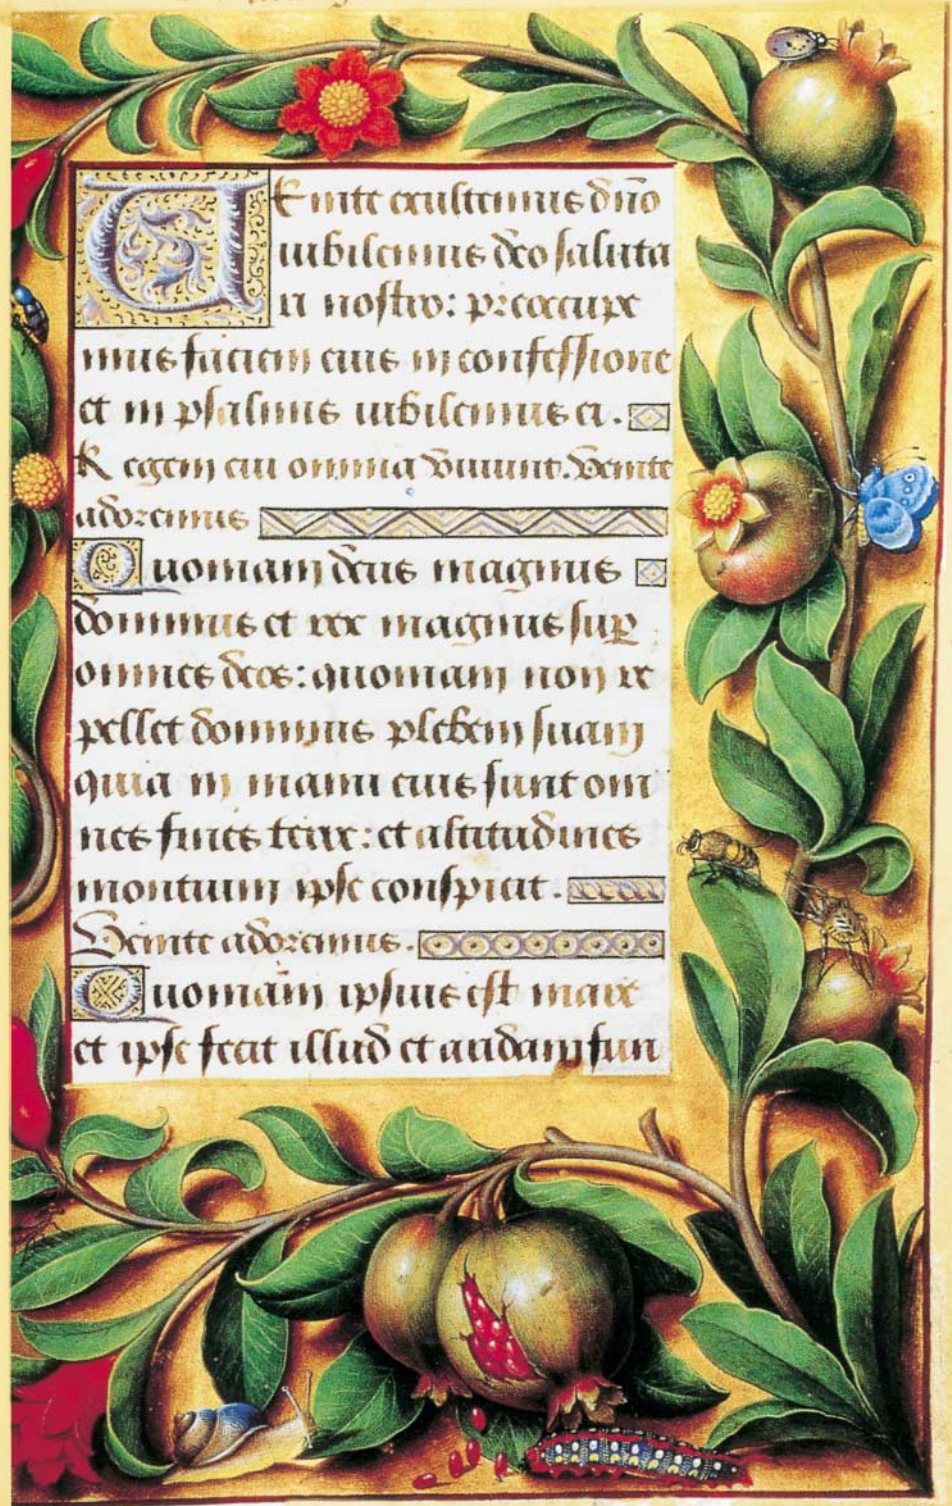 VEnite exultemus dño
iubilemus deo saluta
ri nostro: preoccupe
mus faciem eius in confessione
et in psalmis iubilemus ei.
Regem cui omnia viuunt. Venite
adoremus
Quoniam deus magnus
dominus et rex magnus sup
omnes deos: quoniam non re
pellet dominus plebem suam
quia in manu eius sunt om
nes fines terre: et altitudines
montium ipse conspicit.
Venite adoremus.
Quoniam ipsius est mare
et ipse fecit illud et aridam fun